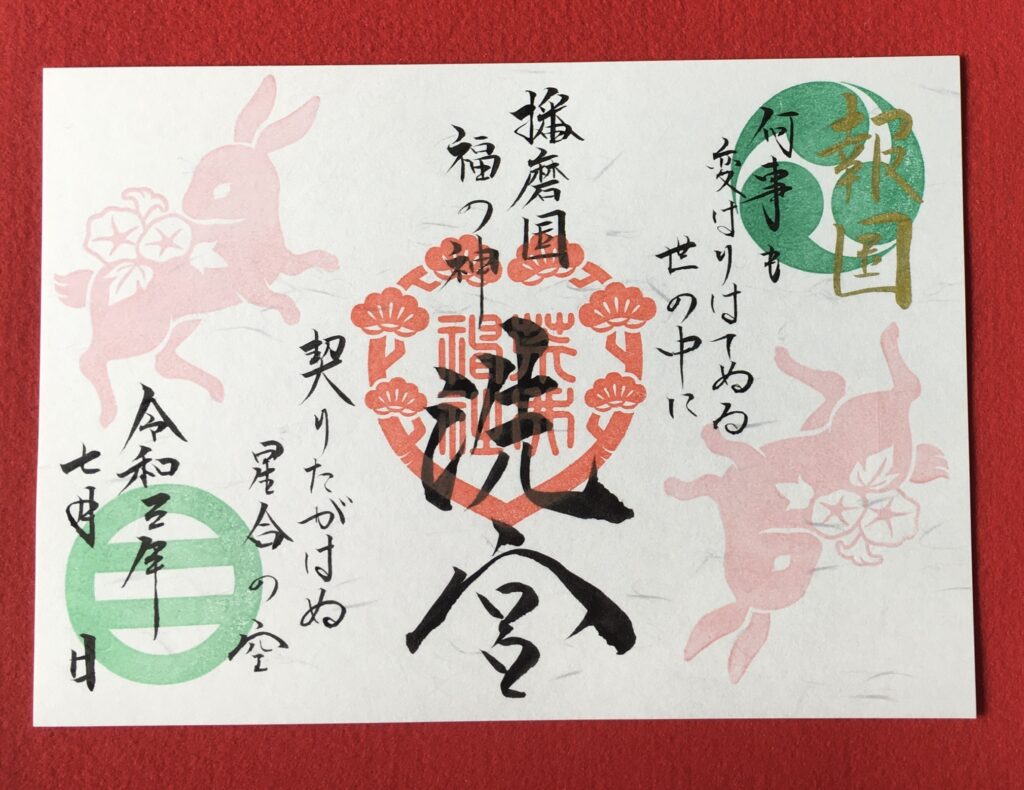 報国
何事も
変はりはてぬる
世の中に
播磨国
福の神
洗宮
契りたがはぬ
星合の空
令和三年
七月 日